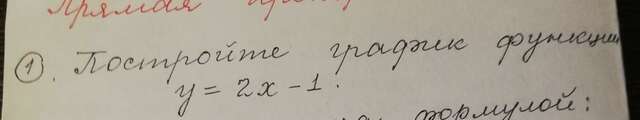 Прямая
①. Постройте график функции
y = 2x - 1.
формулой: